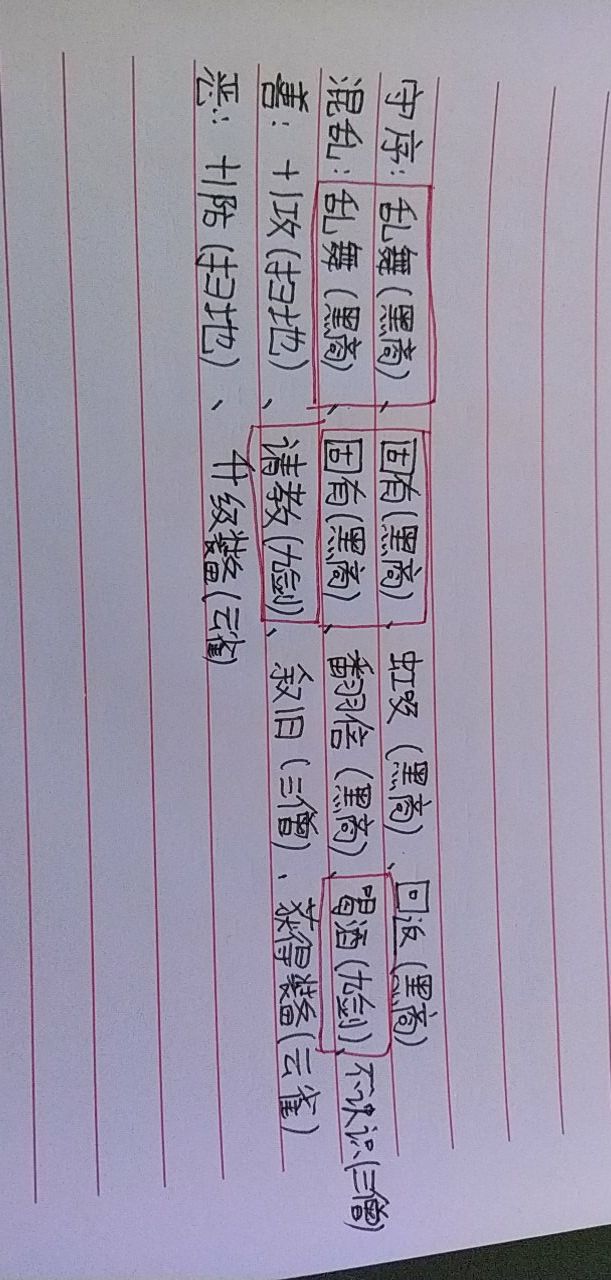 守序：乱舞（黑商）、固有（黑商）、虹吸（黑商）、回返（黑商）
混乱：乱舞（黑商）、固有（黑商）、翻倍（黑商）、喝酒（九剑）、不认识（三僧）
善：+1攻（扫地）、请教（九剑）、叙旧（三僧）、获得装备（云雀）
恶：+1防（扫地）、升级装备（云雀）